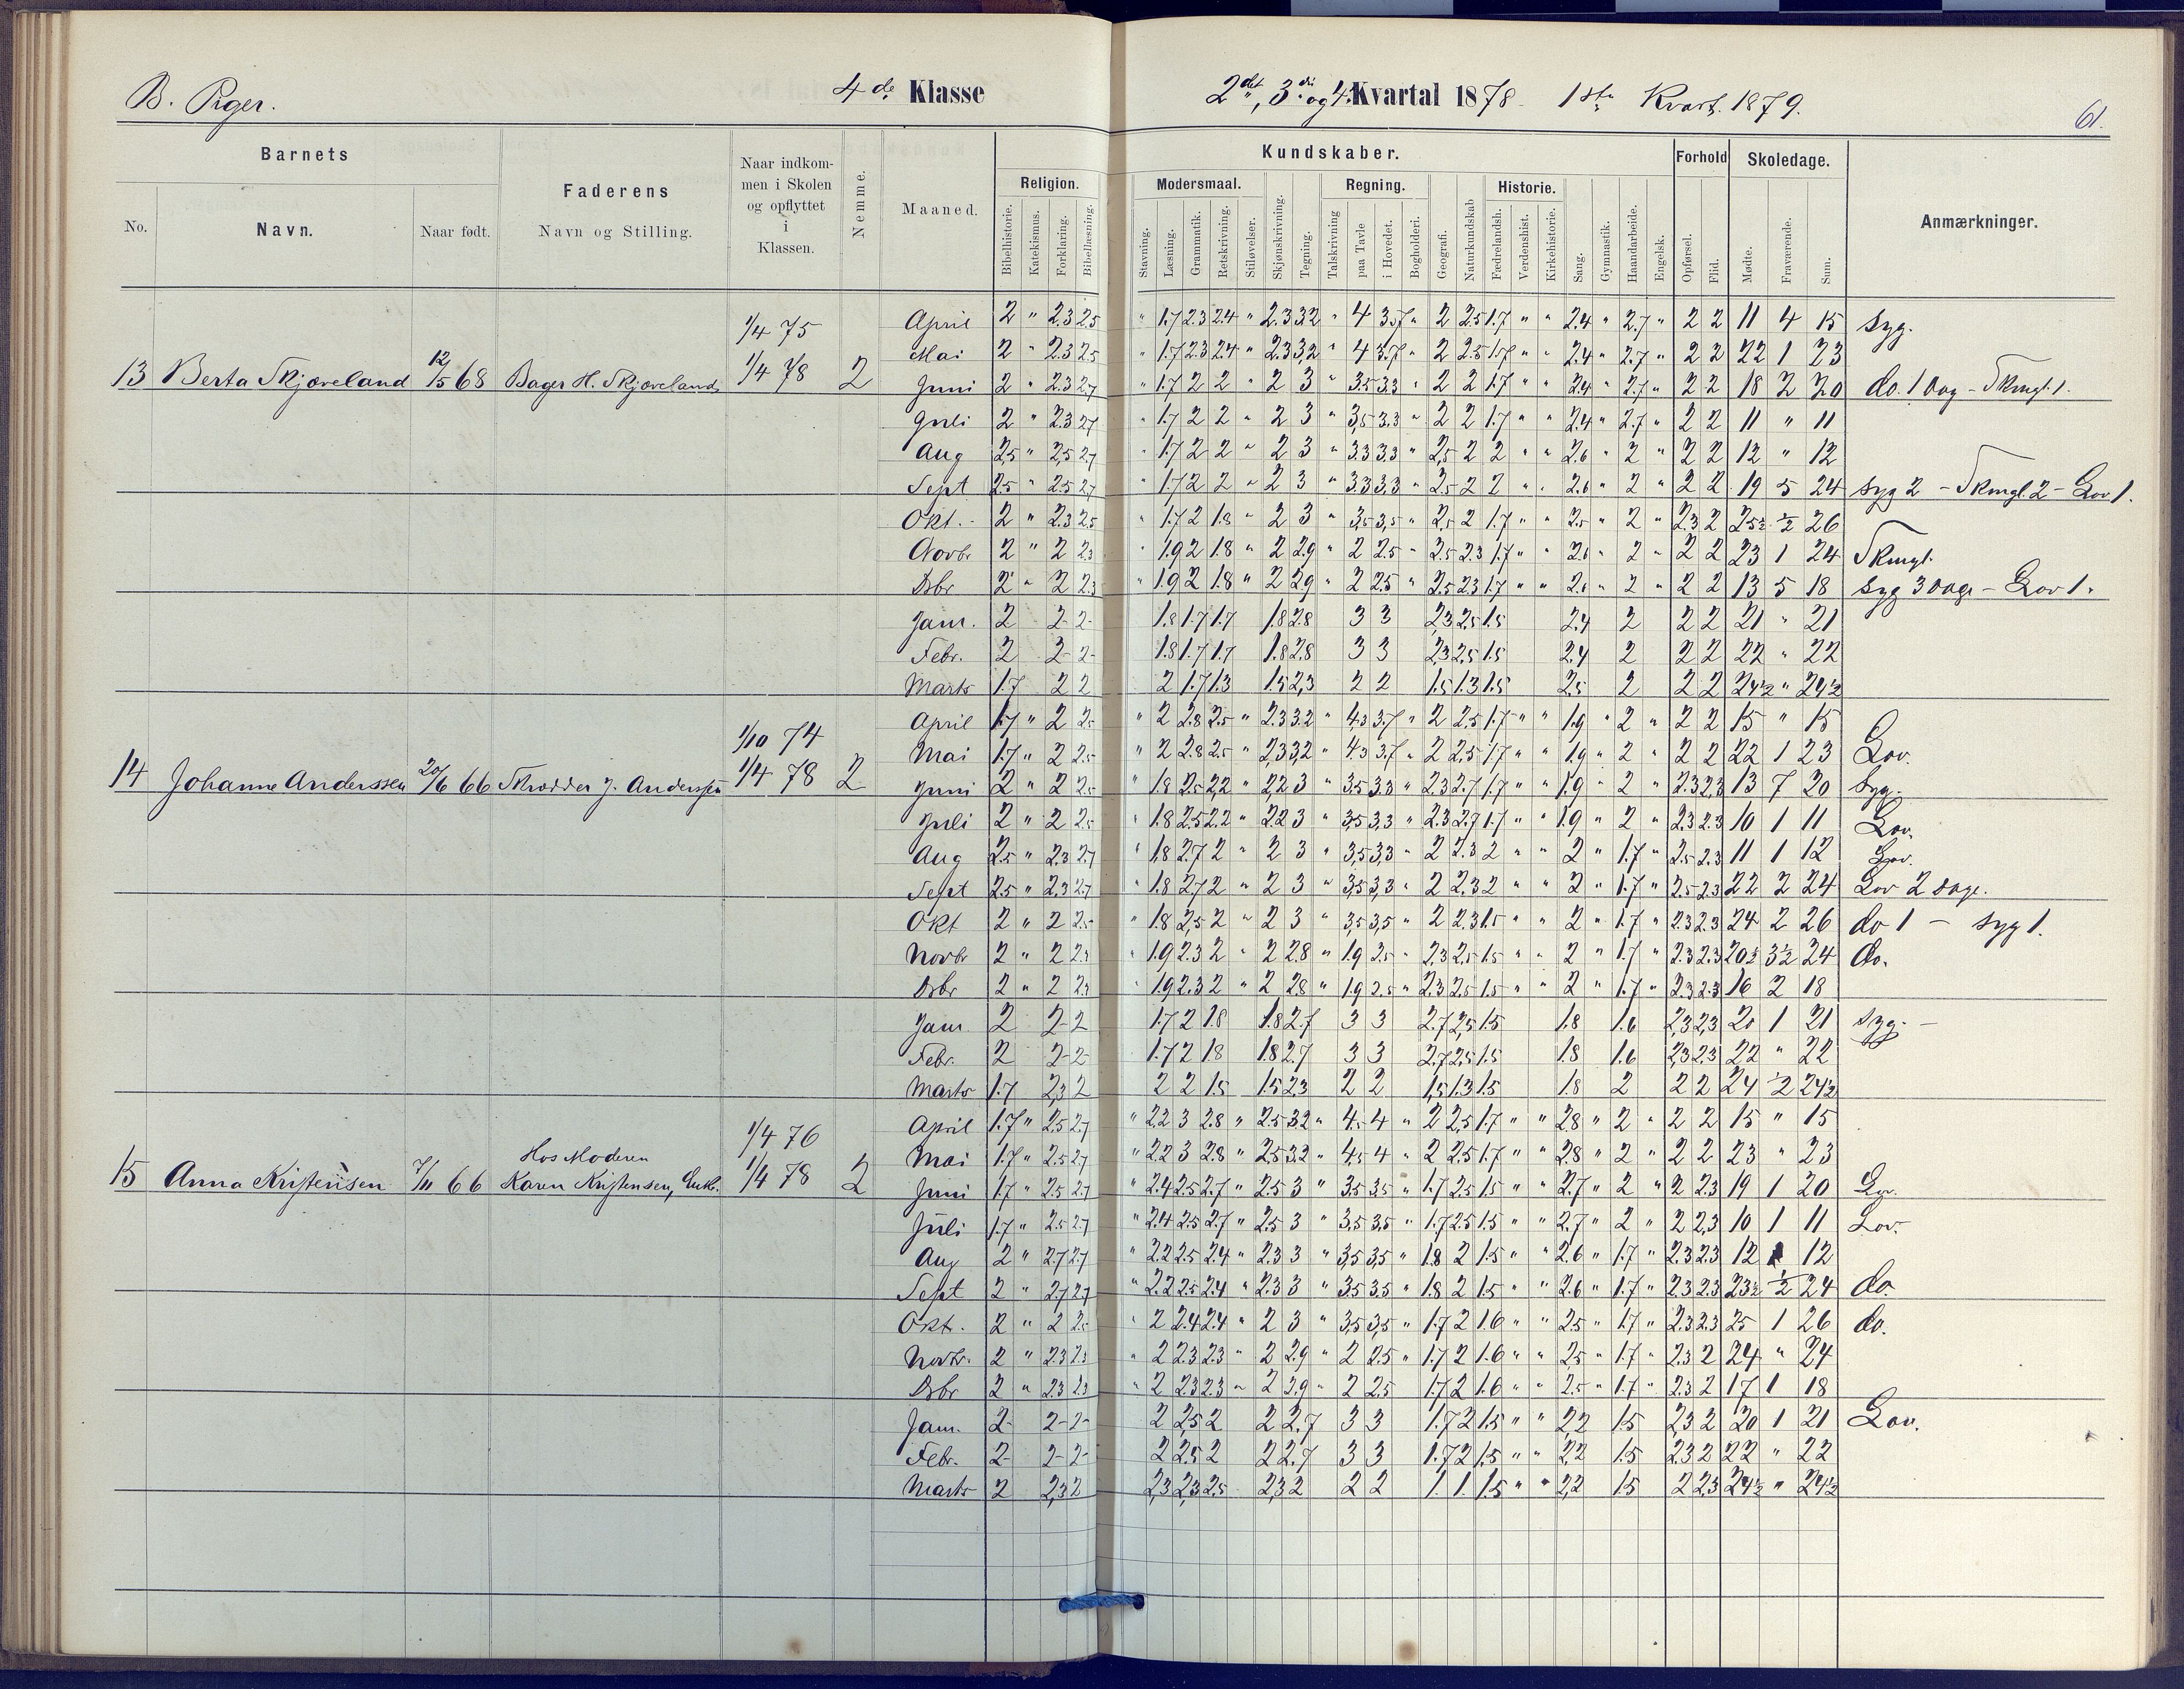 B. Piger. 4de Klasse 2det, 3die og 4. Kvartal 1878 - 1ste Kvart. 1879. 61.
Barnets
Faderens
Naar indkommen i Skolen og opflyttet i Klassen.
Nemme.
Maaned.
Kundskaber.
Forhold
Skoledage.
Anmærkninger.
Religion.
Modersmaal.
Regning.
Historie.
No.
Navn.
Naar født.
Navn og Stilling.
Bibelhistorie.
Katekismus.
Forklaring.
Bibellæsning.
Stavning.
Læsning.
Grammatik.
Retskrivning.
Stiløvelser.
Skjønskrivning.
Tegning.
Talskrivning
paa Tavle
i Hovedet.
Bogholderi.
Geografi.
Naturkundskab
Fædrelandsh.
Verdenshist.
Kirkehistorie.
Sang.
Gymnastik.
Haandarbeide.
Engelsk.
Opførsel.
Flid.
Mødte.
Fraværende.
Sum.
13 Berta Skjæveland 12/5 68 Bager H. Skjæveland 1/4 75 1/4 78 2
April 2 " 2.3 2.5 " 1.7 2.3 2.4 " 2.3 3.2 " 4 3.7 " 2 2.5 1.7 " " 2.4 " 2.7 " 2 2 11 4 15 Syg.
Mai 2 " 2.3 2.5 " 1.7 2.3 2.4 " 2.3 3.2 " 4 3.7 " 2 2.5 1.7 " " 2.4 " 2.7 " 2 2 22 1 23
Juni 2 " 2.3 2.7 " 1.7 2 2 " 2 3 " 3.5 3.3 " 2 2 1.7 " " 2.4 " 2.7 " 2 2 18 2 20 do. 1 Dag - Skmgl. 1.
Juli 2 " 2.3 2.7 " 1.7 2 2 " 2 3 " 3.5 3.3 " 2 2 1.7 " " 2.4 " 2.7 " 2 2 11 " 11
Aug 2.5 " 2.5 2.7 " 1.7 2 2 " 2 3 " 3.3 3.3 " 2.5 2 2 " " 2.6 " 2 " 2 2 12 " 12
Sept 2.5 " 2.5 2.7 " 1.7 2 2 " 2 3 " 3.3 3.3 " 2.5 2 2 " " 2.6 " 2 " 2 2 19 5 24 Syg 2 - Skmgl. 2 - Lov 1.
Okt. 2 " 2.3 2.5 " 1.7 2 1.8 " 2 3 " 3.5 3.5 " 2.5 2 1.7 " " 2.5 " 2 " 2.3 2 25½ ½ 26
Novbr 2 " 2 2.3 " 1.9 2 1.8 " 2 2.9 " 2 2.5 " 2.5 2.3 1.7 " " 2.6 " 2 " 2 2 23 1 24 Skmgl.
Dsbr 2 " 2 2.3 " 1.9 2 1.8 " 2 2.9 " 2 2.5 " 2.5 2.3 1.7 " " 2.6 " 2 " 2 2 13 5 18 Syg 3 Dage - Lov 1.
Jan. 2 2 2 1.8 1.7 1.7 1.8 2.8 3 3 2.3 2.5 1.5 2.4 2 2 2 21 " 21
Febr. 2 2 2 1.8 1.7 1.7 1.8 2.8 3 3 2.3 2.5 1.5 2.4 2 2 2 22 " 22
Marts 1.7 2 2 2 1.7 1.3 1.5 2.3 2 2 1.5 1.3 1.5 2.5 2 2 2 24½ " 24½
14 Johanne Anderssen 20/6 66 Skrædder J. Anderssen 1/10 74 1/4 78 2
April 1.7 " 2 2.5 " 2 2.8 2.5 " 2.3 3.2 " 4.3 3.7 " 2 2.5 1.7 " " 1.9 " 2 " 2 2 15 " 15
Mai 1.7 " 2 2.5 " 2 2.8 2.5 " 2.3 3.2 " 4.3 3.7 " 2 2.5 1.7 " " 1.9 " 2 " 2 2 22 1 23 Lov.
Juni 2 " 2 2.5 " 1.8 2.5 2.2 " 2.2 3 " 3.5 3.3 " 2.3 2.7 1.7 " " 1.9 " 2 " 2.3 2.3 13 7 20 Syg.
Juli 2 " 2 2.5 " 1.8 2.5 2.2 " 2.2 3 " 3.5 3.3 " 2.3 2.7 1.7 " " 1.9 " 2 " 2.3 2.3 10 1 11 Lov.
Aug 2.5 " 2.3 2.7 " 1.8 2.7 2 " 2 3 " 3.5 3.3 " 2 2.3 2 " " 2 " 1.7 " 2.5 2.3 11 1 12 Lov.
Sept 2.5 " 2.3 2.7 " 1.8 2.7 2 " 2 3 " 3.5 3.3 " 2 2.3 2 " " 2 " 1.7 " 2.5 2.3 22 2 24 Lov 2 Dage.
Okt 2 " 2 2.5 " 1.8 2.5 2 " 2 3 " 3.5 3.5 " 2 2.3 1.5 " " 2 " 1.7 " 2.3 2.3 24 2 26 do 1 - Syg 1.
Novbr 2 " 2 2.3 " 1.9 2.3 2 " 2 2.8 " 1.9 2.5 " 2.3 2.5 1.5 " " 2 " 1.7 " 2.3 2.3 20½ 3½ 24 do.
Dsbr 2 " 2 2.3 " 1.9 2.3 2 " 2 2.8 " 1.9 2.5 " 2.3 2.5 1.5 " " 2 " 1.7 " 2.3 2.3 16 2 18
Jan. 2 2 2 1.7 2 1.8 1.8 2.7 3 3 2.7 2.5 1.5 1.8 1.6 2.3 2.3 20 1 21 Syg. -
Febr. 2 2 2 1.7 2 1.8 1.8 2.7 3 3 2.7 2.5 1.5 1.8 1.6 2.3 2.3 22 " 22
Marts 1.7 2.3 2 2 2 1.5 1.5 2.3 2 2 1.5 1.3 1.5 1.8 2 2 2 24 ½ 24½
15 Anna Kristensen 7/11 66 Hos Moderen Karen Kristensen, Enke. 1/4 76 1/4 78 2
April 1.7 " 2.5 2.7 " 2.2 3 2.8 " 2.5 3.2 " 4.5 4 " 2 2.5 1.7 " " 2.8 " 2 " 2 2 15 " 15
Mai 1.7 " 2.5 2.7 " 2.2 3 2.8 " 2.5 3.2 " 4.5 4 " 2 2.5 1.7 " " 2.8 " 2 " 2 2 23 " 23
Juni 1.7 " 2.5 2.7 " 2.4 2.5 2.7 " 2.5 3 " 3.5 3.5 " 1.7 2.5 1.5 " " 2.7 " 2 " 2 2.3 19 1 20 Lov.
Juli 1.7 " 2.5 2.7 " 2.4 2.5 2.7 " 2.5 3 " 3.5 3.5 " 1.7 2.5 1.5 " " 2.7 " 2 " 2 2.3 10 1 11 Lov.
Aug 2 " 2.7 2.7 " 2.2 2.5 2.4 " 2.3 3 " 3.5 3.5 " 1.8 2 1.5 " " 2.6 " 1.7 " 2.3 2.3 12 12
Sept 2 " 2.7 2.7 " 2.2 2.5 2.4 " 2.3 3 " 3.5 3.5 " 1.8 2 1.5 " " 2.6 " 1.7 " 2.3 2.3 23½ ½ 24 do.
Okt. 2 " 2 2.5 " 2 2.4 2.4 " 2 3 " 3.5 3.5 " 1.7 2 1.6 " " 2.5 " 1.7 " 2.3 2.3 25 1 26 do.
Novbr. 2 " 2.3 2.3 " 2 2.3 2.3 " 2 2.9 " 2 2.5 " 1.7 2 1.6 " " 2.5 " 1.7 " 2.3 2 24 " 24
Dsbr 2 " 2.3 2.3 " 2 2.3 2.3 " 2 2.9 " 2 2.5 1.7 2 1.6 " " 2.5 " 1.7 " 2.3 2 17 1 18
Jan. 2 2 2 2 2.5 2 2 2.7 3 3 1.7 2 1.5 " " 2.2 1.5 2.3 2 20 1 21 Lov.
Febr. 2 2 2 2 2.5 2 2 2.7 3 3 1.7 2 1.5 " " 2.2 1.5 2.3 2 22 " 22
Marts 2 2.3 2 2.3 2.3 2.5 2.3 2 2 2 1. 1. 1.5 " " 2.2 1.5 2 2.3 24½ " 24½